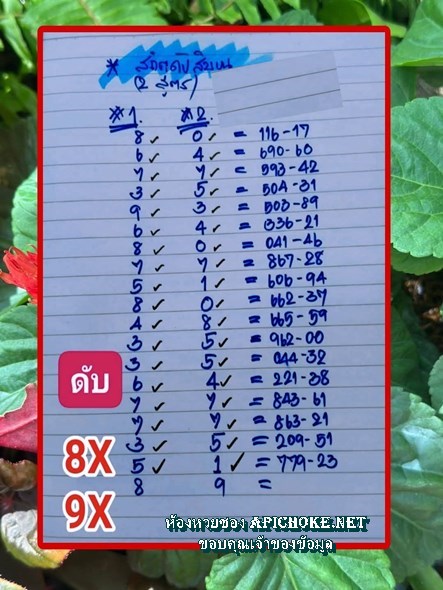 * สถิตดับสิบบน
(2 สูตร)
*1. *2.
8 ✓ 0 ✓ = 116-17
6 ✓ 4 ✓ = 690-60
7 ✓ 7 ✓ = 593-42
3 ✓ 5 ✓ = 504-31
9 ✓ 3 ✓ = 503-89
6 ✓ 4 ✓ = 336-21
8 ✓ 0 ✓ = 041-46
7 ✓ 7 ✓ = 867-28
5 ✓ 1 ✓ = 606-94
8 ✓ 0 ✓ = 662-37
4 ✓ 8 ✓ = 665-59
3 ✓ 5 ✓ = 962-00
3 ✓ 5 ✓ = 044-32
6 ✓ 4 ✓ = 221-38
7 ✓ 7 ✓ = 843-61
7 ✓ 7 ✓ = 863-21
3 ✓ 5 ✓ = 209-51
5 ✓ 1 ✓ = 779-23
8 9 =
ดับ
8X
9X
ห้องหวยซอง APICHOKE.NET
ขอบคุณเจ้าของข้อมูล